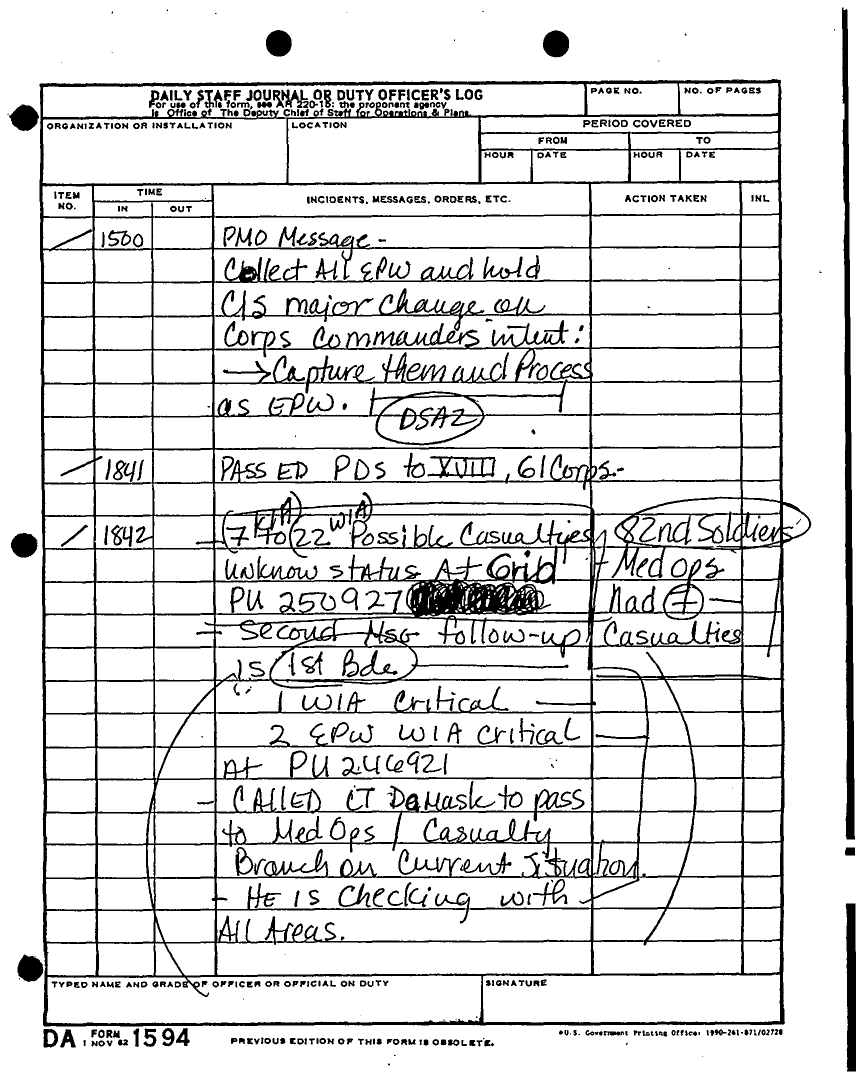 DAILY STAFF JOURNAL OR DUTY OFFICER'S LOG
For use of this form, see AR 220-15; the proponent agency
is Office of The Deputy Chief of Staff for Operations & Plans.
PAGE NO.
NO. OF PAGES
ORGANIZATION OR INSTALLATION
LOCATION
PERIOD COVERED
FROM
TO
HOUR
DATE
HOUR
DATE
ITEM NO.
TIME
IN
OUT
INCIDENTS, MESSAGES, ORDERS, ETC.
ACTION TAKEN
INL
1500
PMO Message -
Collect All EPW and hold
C/S major change on
Corps Commanders intent:
→ Capture them and Process
as EPW.
DSA2
1841
PASSED PDS to XVIII, 61 Corps.-
1842
(7 KIA) to (22 WIA) Possible Casualties
82nd Soldiers
unknow status At Grid
+ Med ops
PU 250927
had +
- Second Msg follow-up
Casualties
is 1st Bde
1 WIA Critical
2 EPW WIA critical
At PU 246921
- CALLED LT Damask to pass
to Med Ops / Casualty
Branch on Current Situation.
- HE IS Checking with
All Areas.
TYPED NAME AND GRADE OF OFFICER OR OFFICIAL ON DUTY
SIGNATURE
DA FORM 1594
1 NOV 62
PREVIOUS EDITION OF THIS FORM IS OBSOLETE.
*U.S. Government Printing Office: 1990-261-871/02728